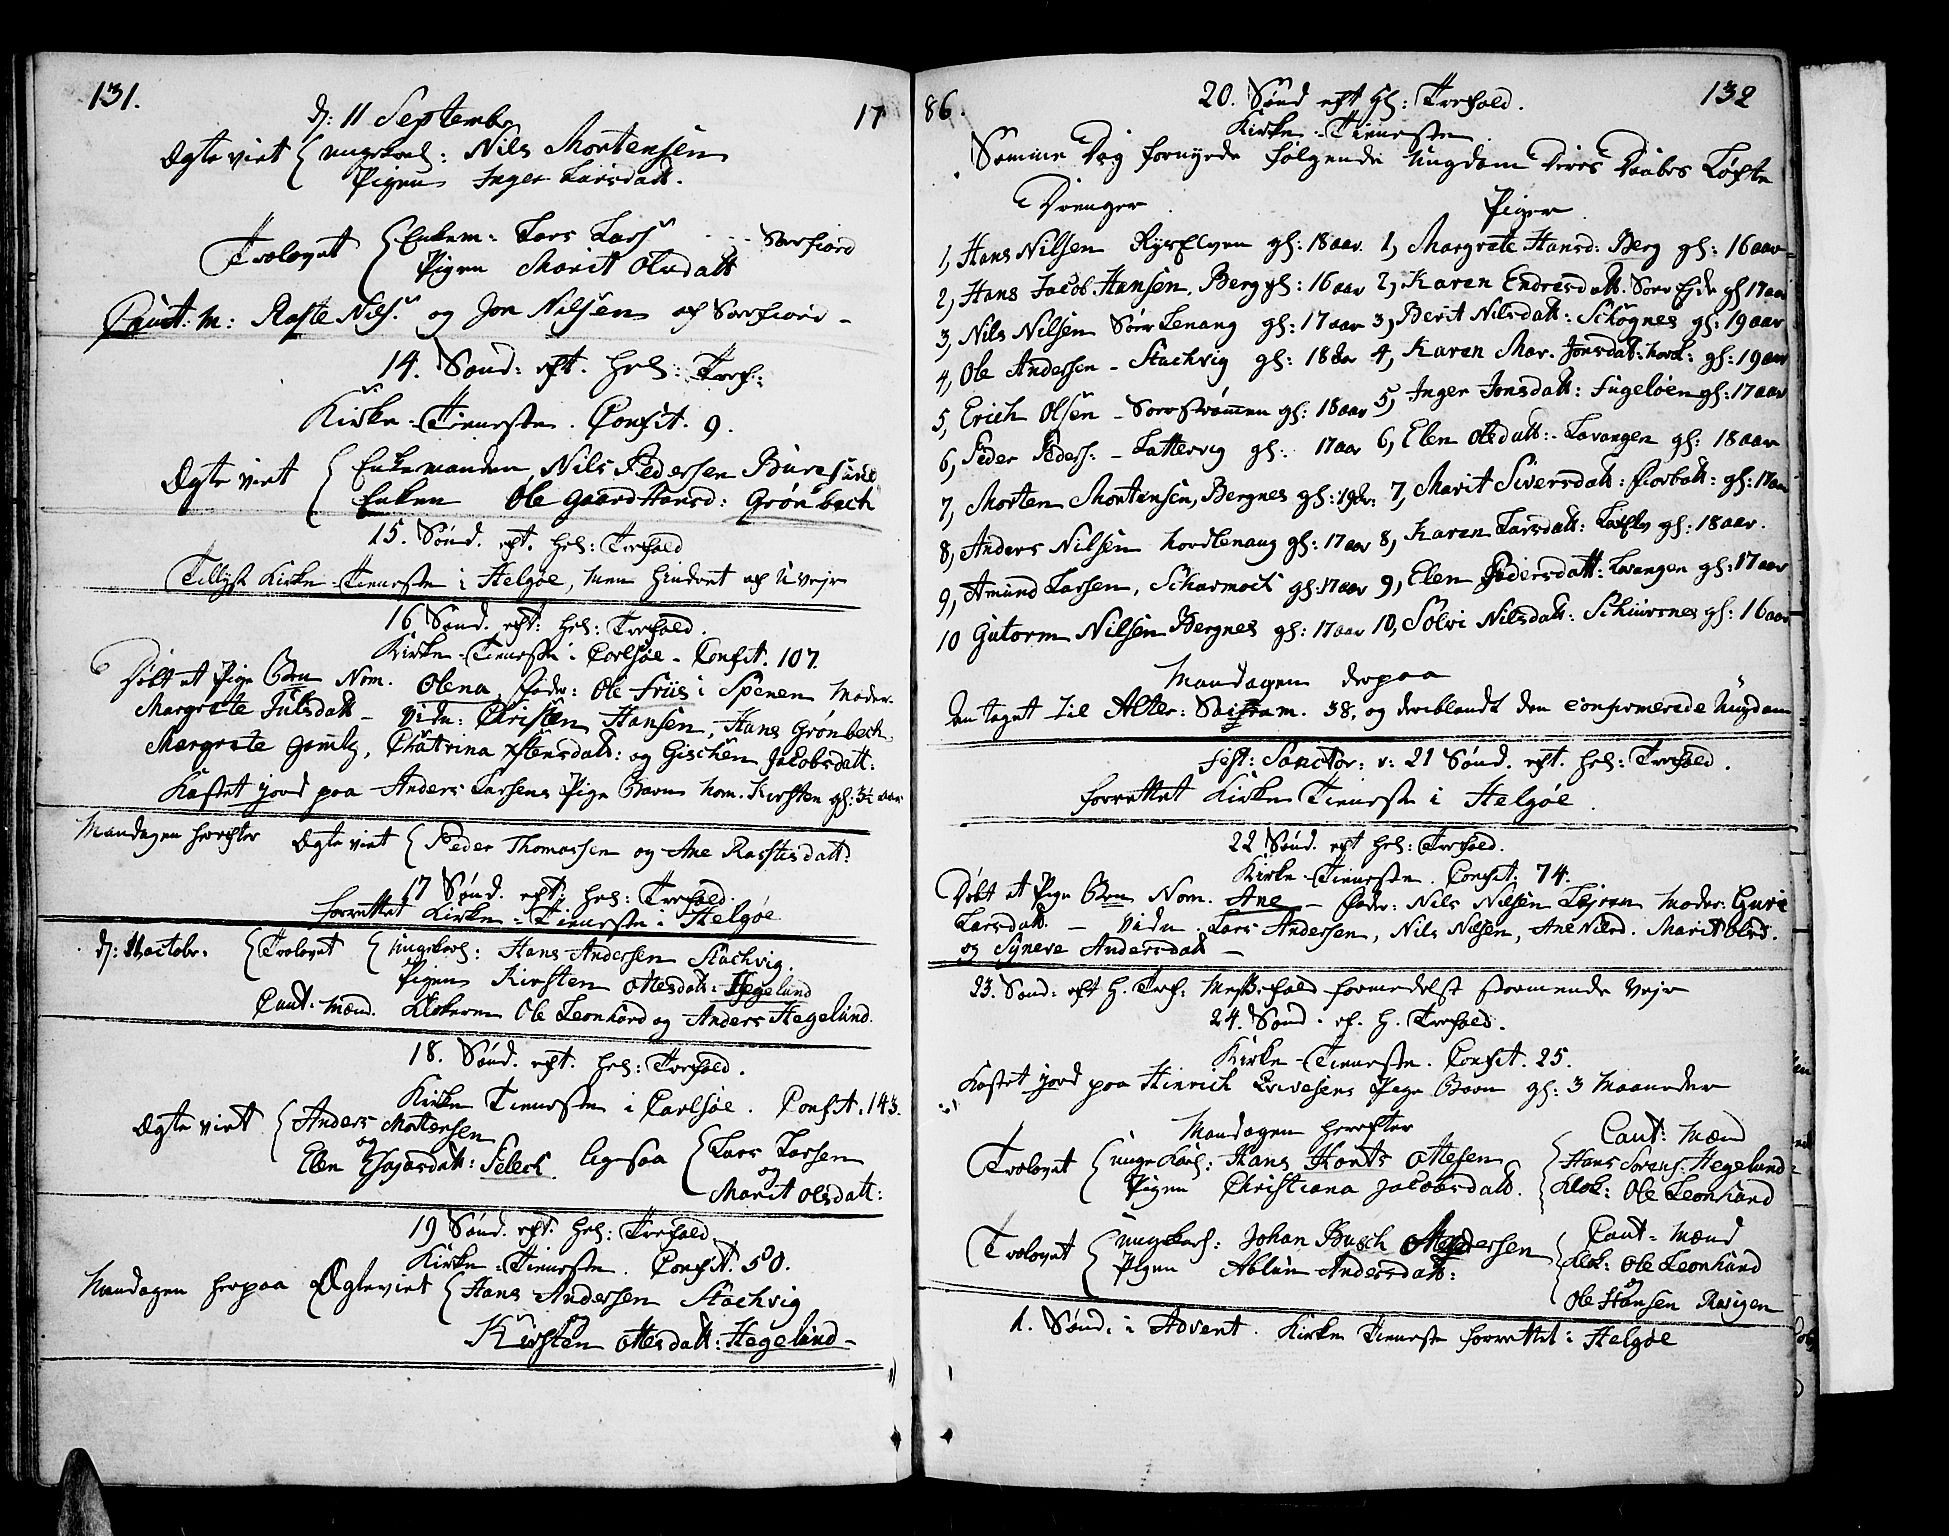 131.
17
d: 11 Septembr
Ægte viet { ungekarl: Nils Mortensen
Pigen Inger Larsdatt.
Trolovet { Enkem: Lars Lars. - - - Sørfiord
Pigen Marit Olsdatt
Caut: M: Raste Nils. og Jon Nilsen af Sørfiord -
14. Sønd: eft. Hel: Tref:
Kirke-Tieneste. Confit. 9.
Ægte viet { Enkemanden Nils Pedersen Buresund
Enken Ole gaard Hansd: Grønbech
15. Sønd. eft. Hel: Trefold
Tillyst Kirke-Tieneste i Helgøe, men hindret af Uvejr
16 Sønd. eft: Hel: Trefold.
Kirke-Tieneste i Carlsøe - Confit. 107.
Døbt et Pige Barn Nom. Olena, Fader: Ole Friis i Spenen Moder:
Margrete Julsdatt - Vidn: Christen Hansen, Hans Grønbech,
Margrete Gamlz, Chatrina Xstensdatt: og Gischen Jacobsdatt:
Kastet jord paa Anders Larsens Pige Barn Nom. Kirsten gl: 3½ aar
Mandagen herefter Ægte viet { Peder Thomassen og Ane Rastesdatt:
17 Sønd. eft: Hel: Trefold.
forrettet Kirke-Tieneste i Helgøe
d: 11 octobr. { Trolovet { Ungekarl: Hans Andersen Stachvig.
Pigen Kirsten Ottesdatt: Hegelund
Caut: Mænd. Klokeren Ole Leonhard og Anders Hegelund.
18. Sønd. eft. Hel: Trefold.
Kirke Tieneste i Carlsøe. Confit. 143.
Ægte viet { Anders Mortensen
og
Elen Esajasdatt: Selech. ligesaa { Lars Larsen
og
Marit Olsdatt:
19 Sønd. eft. Hel: Trefold
Kirke-Tieneste. Confit. 50.
Mandagen herpaa Ægteviet { Hans Andersen Stachvig
Kirsten Ottesdatt: Hegelund -
86.
132
20. Sønd eft Hl: Trefold.
Kirke-Tieneste.
Samme Dag fornyede følgende Ungdom Deres Daabes Løfte
Drenger
Piger
1, Hans Nilsen Rysselven gl: 18 aar
1, Margrete Hansd: Berg gl: 16 aar
2, Hans Jacob Hansen, Berg gl: 16 aar
2, Karen Endresdatt. gl 17 aar
3, Nils Nilsen Sørlenang gl: 17 aar
3, Berit Nilsdatt: Schognes gl: 19 aar
4, Ole Andersen - Stachvig gl: 18 aar
4, Karen Mar. Jonsdatt: Nord: gl: 19 aar
5, Erich Olsen - Sørstrømen gl: 18 aar
5, Inger Jonsdatt: Fugeløen gl: 17 aar
6, Peder Peders: - Lattervig gl: 17 aar
6, Elen Olsdatt: - Lavangen gl: 18 aar
7, Morten Mortensen, Bergnes gl: 19 Ar:
7, Marit Siversdatt: gl: 17 aar
8, Anders Nilsen Nordlenang gl: 17 aar
8, Karen Larsdatt: gl: 18 aar.
9, Amund Larsen, Scharmoit gl: 17 aar
9, Elen Pedersdatt: Lavangen gl: 17 aar
10 Gutorm Nilsen Bergnes gl: 17 aar
10, Solvi Nilsdatt: Schiursnes gl: 16 aar
Mandagen derpaa
Antaget til Alter: Sacram. 38, og deriblandt den confirmerede Ungdom
Fest: Sanctor: v: 21 Sønd. eft. Hel: Trefold.
forrettet Kirke Tieneste i Helgøe.
22 Sønd. eft Hel: Trefold.
Kirke-Tieneste. Confit: 74.
Døbt et Pige Barn Nom. Ane - Fader: Nils Nilsen Moder: Guri
Larsdatt. - Vidn. Lars Andersen, Nils Nilsen, Ane Nilsd. Marit Olsd.
og Syneve Andersdatt -
23. Sønd: eft H. Tref: Messefald formedelst stormende Vejr
24. Sønd. ef. H. Trefold.
Kirke-Tieneste. Confit. 25.
Kastet jord paa Hinrich Pige Barn gl: 3 Maaneder
Mandagen herefter
Trolovet { unge Karl: Hans Horts Ottesen
Pigen Christiana Jacobsdatt.
Caut: Mænd
Hans Sørens: Hegelund
Klok: Ole Leonhard
Trolovet { ungekarl: Johan Busch Andersen
Pigen Ablun Andersdatt:
Caut - Mænd
Klok: Ole Leonhard
og
Ole Hansen Rasigen
1. Sønd. i Advent. Kirke Tieneste forrettet i Helgøe